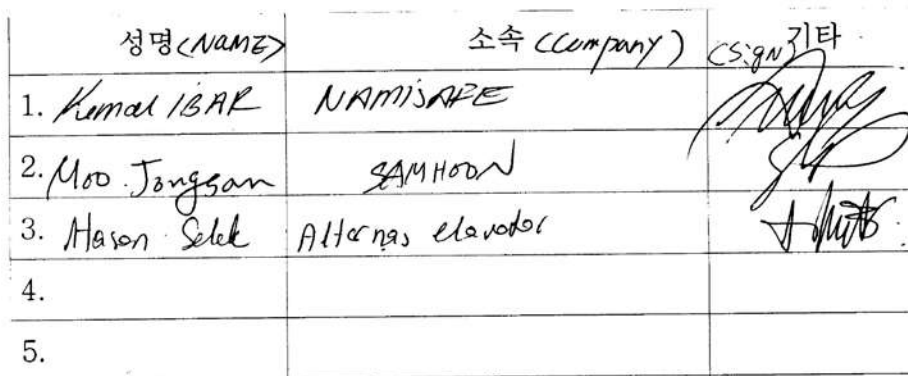 성명 (NAME) 소속 (Company) (Sign) 기타
1. Kemal IBAR NAMISAFE
2. Moo Jongsan SAMHOON
3. Hasan Selek Alternas elavator
4.
5.